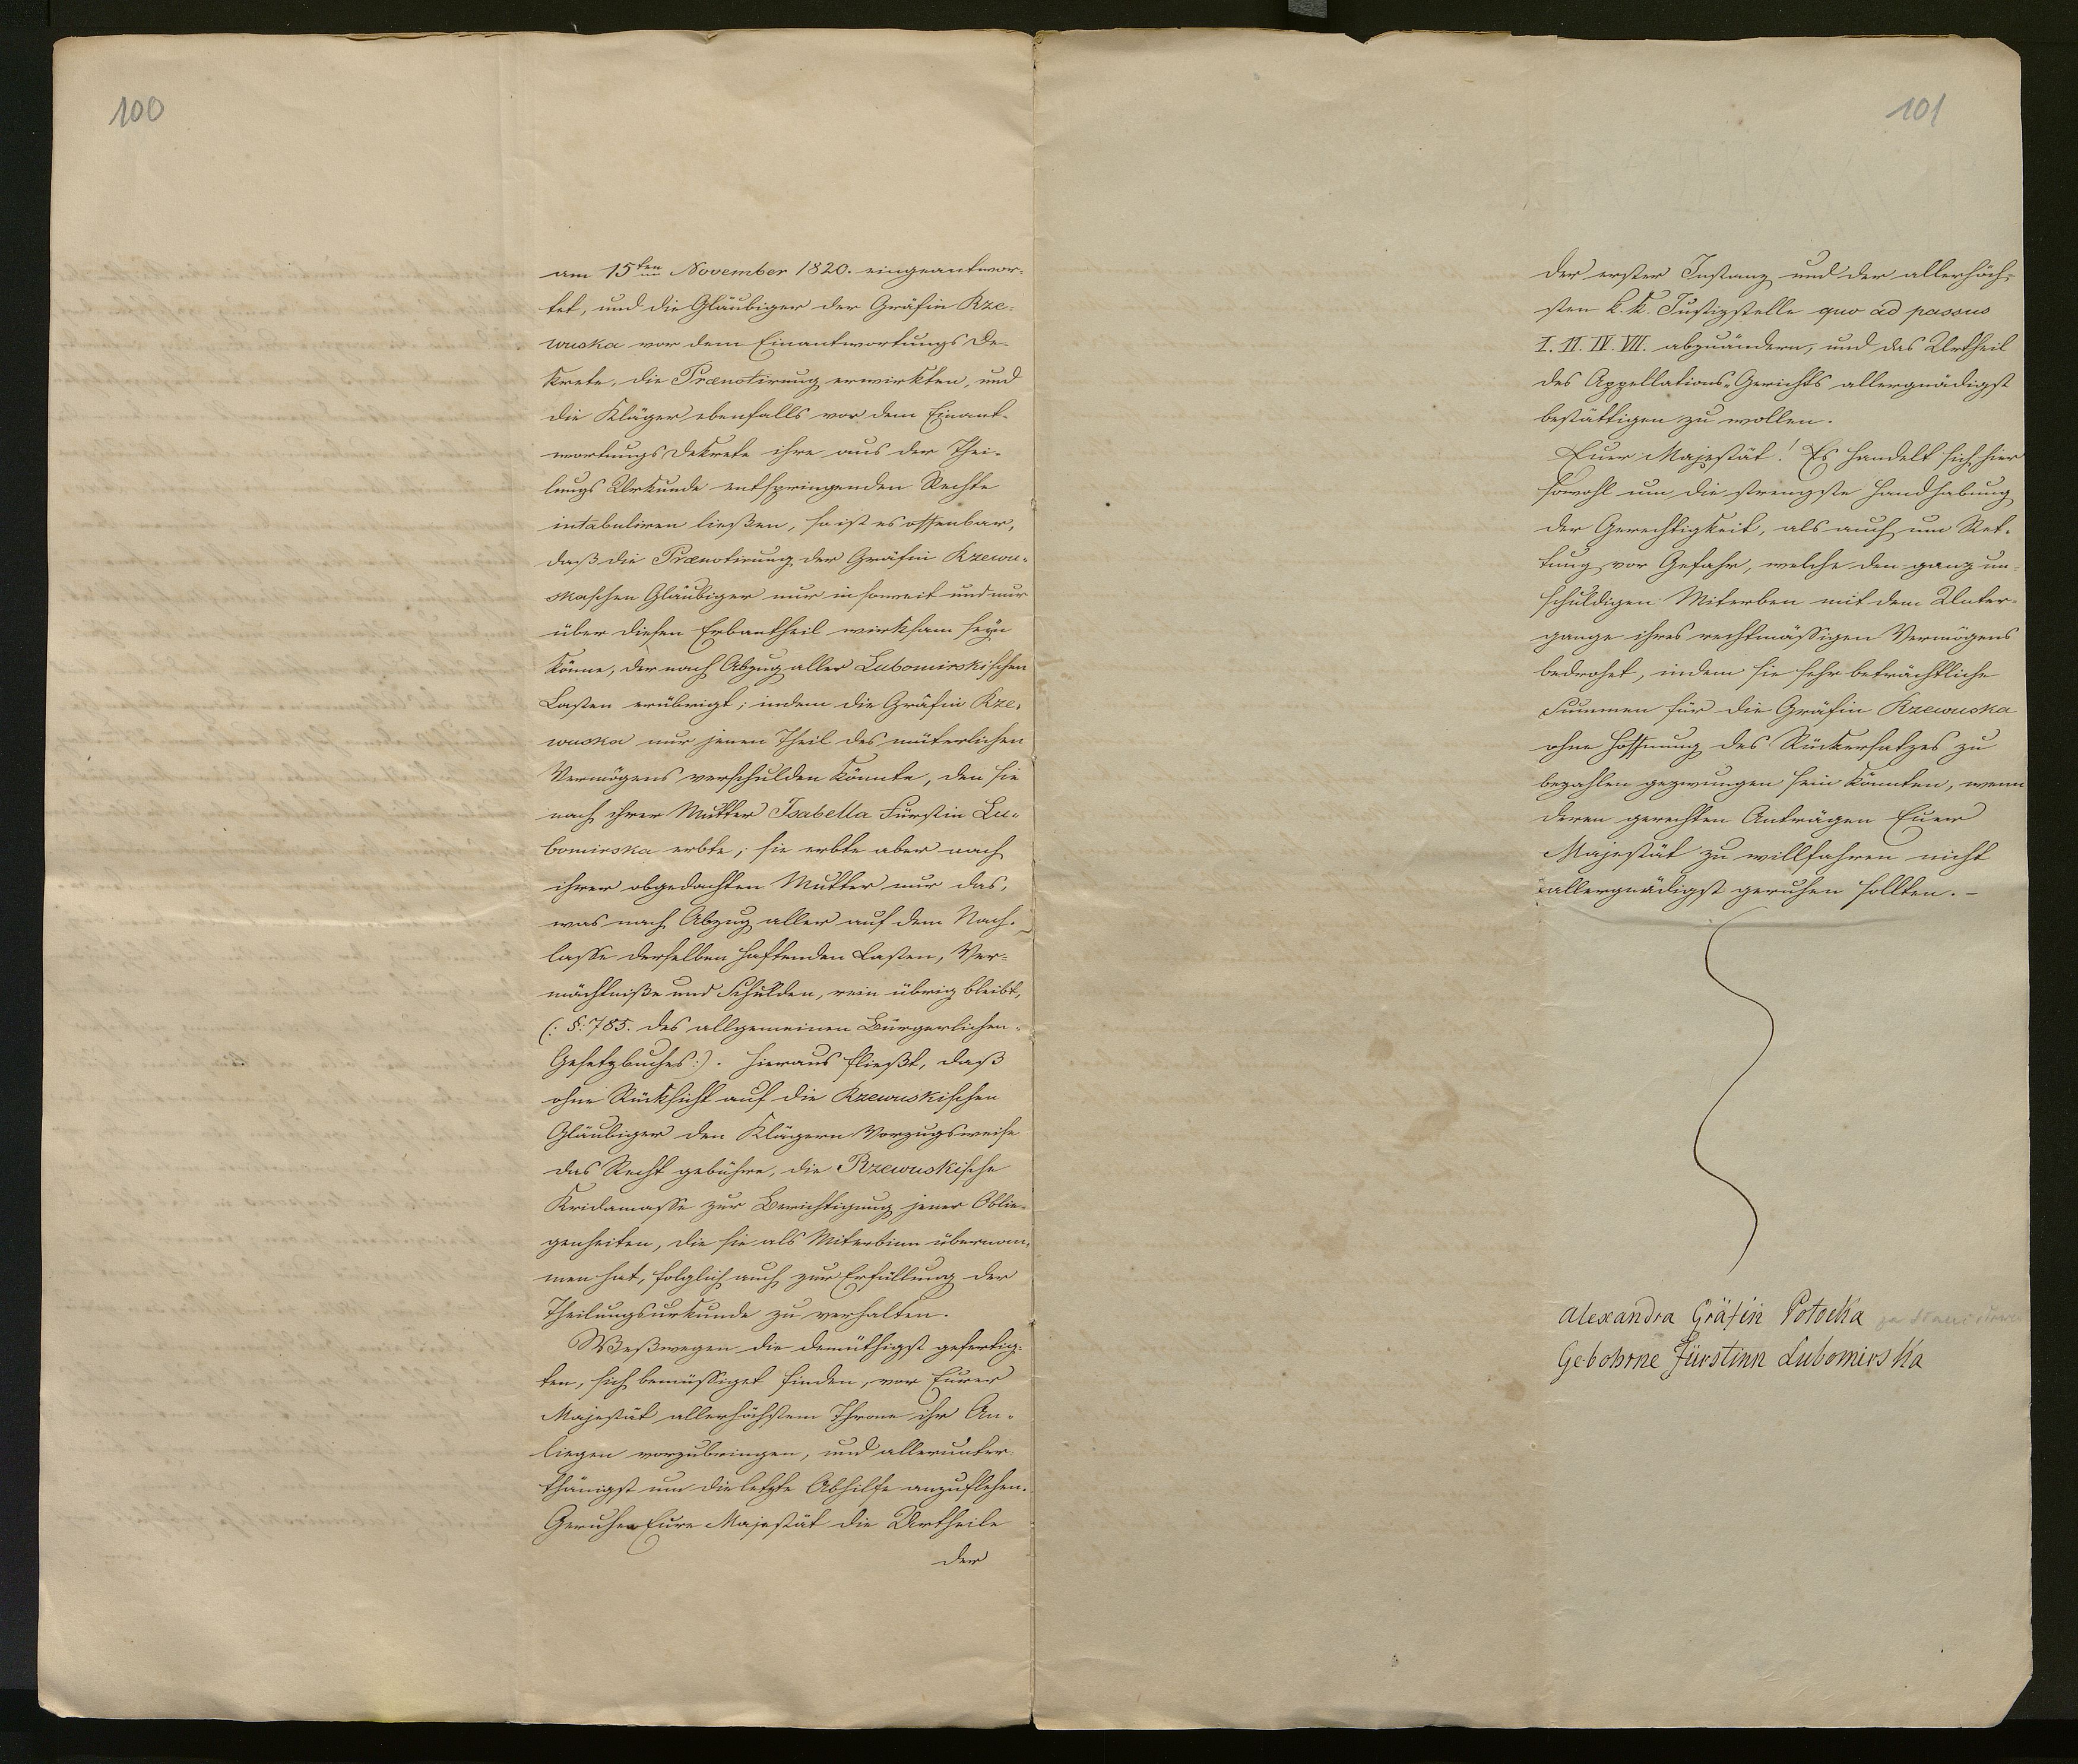 100
am 15ten November 1820. eingeantwor-
tet, und die Gläubiger der Gräfin Rze-
wuska vor dem Einantwortungs De-
krete, die Prænotirung erwirkten, und
die Kläger ebenfalls vor dem Einant-
wortungs Dekrete ihre aus der Thei-
lungs Urkunde entspringenden Rechte
intabuliren ließen, so ist es offenbar,
daß die Prænotirung der Gräfin Rzewu-
skaschen Gläubiger nur insoweit und nur
über diesen Erbantheil wirksam seÿn
könne, der nach Abzug aller Lubomirskischen
Lasten erübrigt; indem die Gräfin Rze-
wuska nur jenen Theil des müterlichen
Vermögens verschulden könnte, den sie
nach ihrer Mutter Isabella Fürstin Lu-
bomirska erbte; sie erbte aber nach
ihrer obgedachten Mutter nur das,
was nach Abzug aller auf dem Nach-
lasse derselben haftenden Lasten, Ver-
mächtniße und Schulden, rein übrig bleibt,
(: §: 785. des allgemeinen Bürgerlichen-
Gesetzbuches:). Hieraus fließt, daß
ohne Rücksicht auf die Rzewuskischen
Gläubiger den Klägern Vorzugsweise
das Recht gebühre, die Rzewuskische
Kridamasse zur Berichtigung jener Oblie-
genheiten, die sie als Miterbinn übernom-
men hat, folglich auch zur Erfüllung der
Theilungsurkunde zu verhalten.
Weßwegen die demüthigst gefertig-
ten, sich bemüssiget finden, vor Eurer
Majestät allerhöchstem Throne ihr An-
liegen vorzubringen, und allerunter-
thänigst um die letzte Abhilfe anzuflehen.
Geruhen Eure Majestät die Urtheile
der
101
der erster Instanz und der allerhöch-
sten k. k. Justizstelle quo ad passus
I. II. IV. VII. abzuändern, und das Urtheil
des Appellations-Gerichts allergnädigst
bestättigen zu wollen.
Euer Majestät! Es handelt sich hier
sowohl um die strengste Handhabung
der Gerechtigkeit, als auch um Ret-
tung vor Gefahr, welche den ganz un-
schuldigen Miterben mit dem Unter-
gange ihres rechtmässigen Vermögens
bedrohet, indem sie sehr beträchtliche
Summen für die Gräfin Rzewuska
ohne Hoffnung des Rückersatzes zu
bezahlen gezwungen sein könnten, wenn
deren gerechten Anträgen Euer
Majestät zu willfahren nicht
allergnädigst geruhen sollten. -
Alexandra Gräfin Potocka
Gebohrne Fürstinn Lubomirska